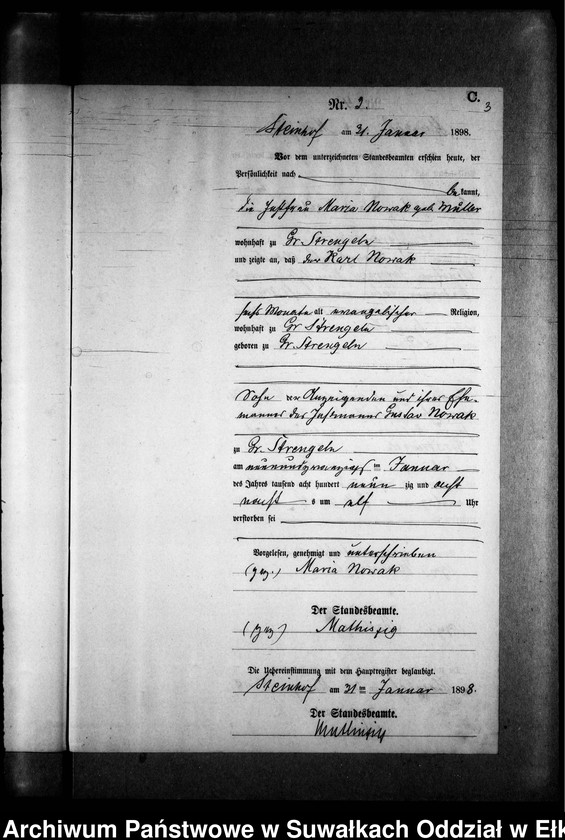 C.
3
Nr. 2.
Steinhof am 31. Januar 1898.
Vor dem unterzeichneten Standesbeamten erschien heute, der
Persönlichkeit nach
bekannt,
die Instfrau Maria Nowak geb. Müller
wohnhaft zu Gr. Strengeln
und zeigte an, daß der Karl Nowak
sechs Monate alt evangelischer Religion,
wohnhaft zu Gr Strengeln
geboren zu Gr. Strengeln
Sohn der Anzeigenden und ihres Ehe-
mannes des Instmannes Gustav Nowak
zu Gr. Strengeln
am neunundzwanzigs ten Januar
des Jahres tausend acht hundert neun zig und acht
nachts um elf Uhr
verstorben sei
Vorgelesen, genehmigt und unterschrieben
(gez.) Maria Nowak
Der Standesbeamte.
(gez) Mathiszig
Die Uebereinstimmung mit dem Hauptregister beglaubigt.
Steinhof am 31 ten Januar 1898.
Der Standesbeamte.
Mathiszig
Archiwum Państwowe w Suwałkach Oddział w Ełk